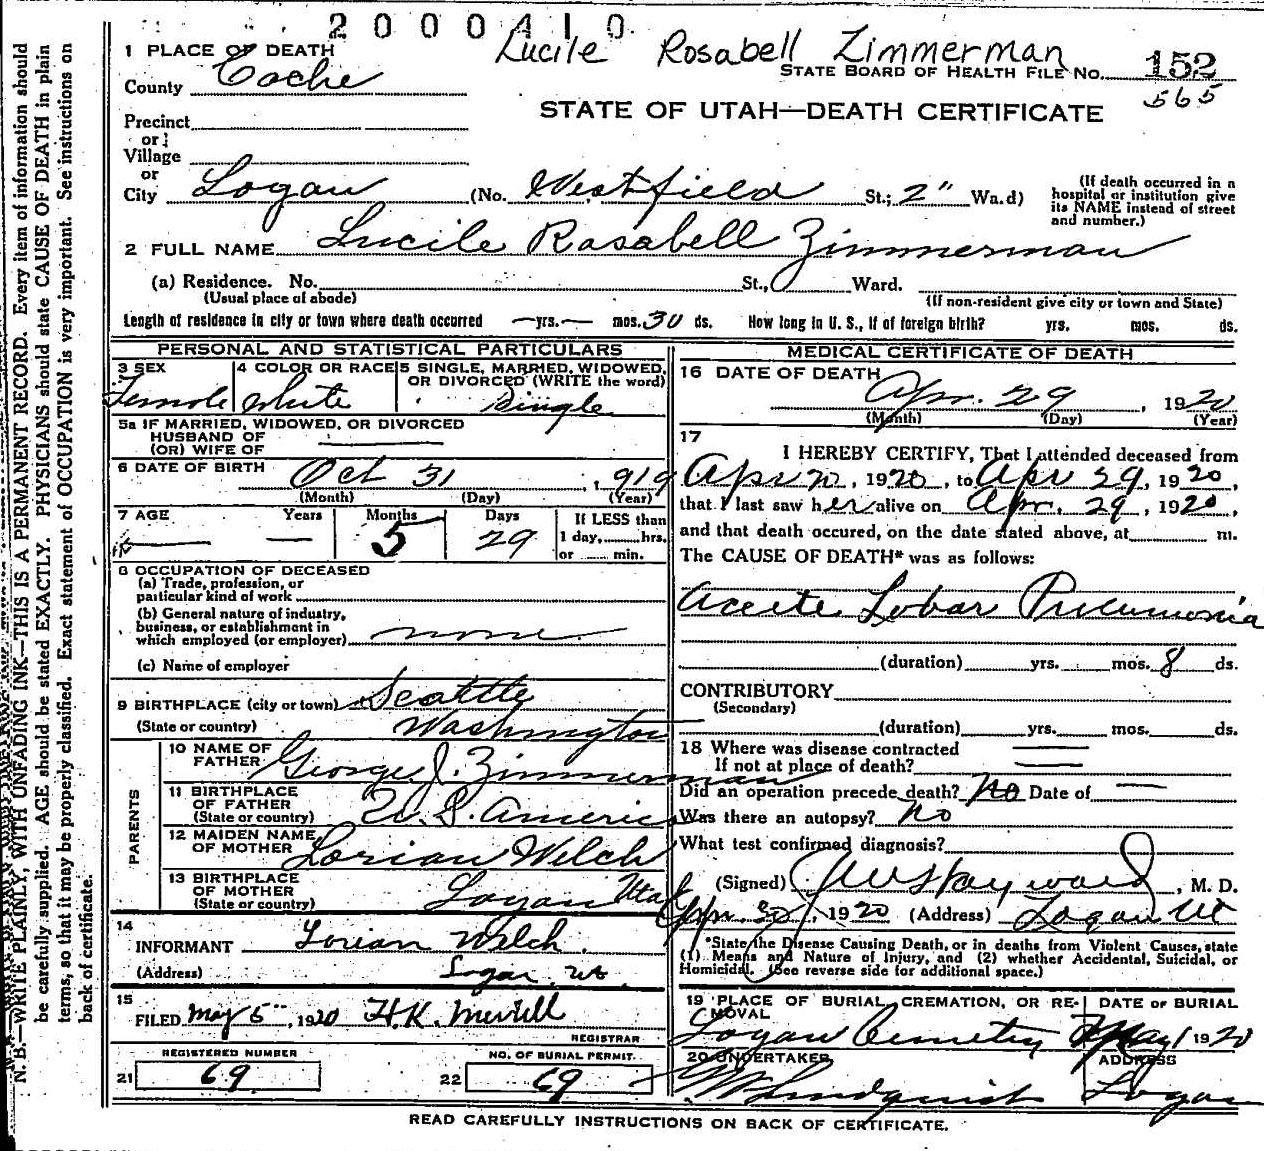 2000410
Lucile Rosabell Zimmerman
1 PLACE OF DEATH
STATE BOARD OF HEALTH FILE NO. 152
County Cache
565
STATE OF UTAH—DEATH CERTIFICATE
Precinct
or
Village
or
City Logan (No. Westfield St.; 2" Ward)
(If death occurred in a hospital or institution give its NAME instead of street and number.)
2 FULL NAME Lucile Rosabell Zimmerman
(a) Residence. No. St., Ward.
(Usual place of abode) (If non-resident give city or town and State)
Length of residence in city or town where death occurred — yrs. — mos. 30 ds. How long in U. S., if of foreign birth? yrs. mos. ds.
PERSONAL AND STATISTICAL PARTICULARS
3 SEX 4 COLOR OR RACE 5 SINGLE, MARRIED, WIDOWED, OR DIVORCED (WRITE the word)
Female White Single
5a IF MARRIED, WIDOWED, OR DIVORCED
HUSBAND OF
(OR) WIFE OF
6 DATE OF BIRTH Oct 31, 1919
(Month) (Day) (Year)
7 AGE Years Months Days If LESS than
— 5 29 1 day, hrs.
or min.
8 OCCUPATION OF DECEASED
(a) Trade, profession, or
particular kind of work
(b) General nature of industry,
business, or establishment in
which employed (or employer) none
(c) Name of employer
9 BIRTHPLACE (city or town) Seattle
(State or country) Washington
PARENTS
10 NAME OF
FATHER George J. Zimmerman
11 BIRTHPLACE
OF FATHER
(State or country) U. S. America
12 MAIDEN NAME
OF MOTHER Lorian Welch
13 BIRTHPLACE
OF MOTHER
(State or country) Logan Utah
14
INFORMANT Lorian Welch
(Address) Logan Ut.
15
FILED May 5, 1920 H.K. Merrill
REGISTRAR
REGISTERED NUMBER NO. OF BURIAL PERMIT.
21 69 22 69
MEDICAL CERTIFICATE OF DEATH
16 DATE OF DEATH
Apr. 29, 1920
(Month) (Day) (Year)
17
I HEREBY CERTIFY, That I attended deceased from
Apr 20, 1920, to Apr 29, 1920,
that I last saw her alive on Apr. 29, 1920,
and that death occured, on the date stated above, at m.
The CAUSE OF DEATH* was as follows:
Acute Lobar Pneumonia
(duration) yrs. mos. 8 ds.
CONTRIBUTORY
(Secondary)
(duration) yrs. mos. ds.
18 Where was disease contracted
If not at place of death?
Did an operation precede death? No Date of —
Was there an autopsy? No
What test confirmed diagnosis?
(Signed) Hayward, M. D.
Apr. 30, 1920 (Address) Logan Ut
*State the Disease Causing Death, or in deaths from Violent Causes, state
(1) Means and Nature of Injury, and (2) whether Accidental, Suicidal, or
Homicidal. (See reverse side for additional space.)
19 PLACE OF BURIAL, CREMATION, OR REMOVAL DATE OF BURIAL
Logan Cemetery May 1 1920
20 UNDERTAKER ADDRESS
Lindquist Logan
READ CAREFULLY INSTRUCTIONS ON BACK OF CERTIFICATE.
N. B.—WRITE PLAINLY, WITH UNFADING INK—THIS IS A PERMANENT RECORD. Every item of information should
be carefully supplied. AGE should be stated EXACTLY. PHYSICIANS should state CAUSE OF DEATH in plain
terms, so that it may be properly classified. Exact statement of OCCUPATION is very important. See instructions on
back of certificate.